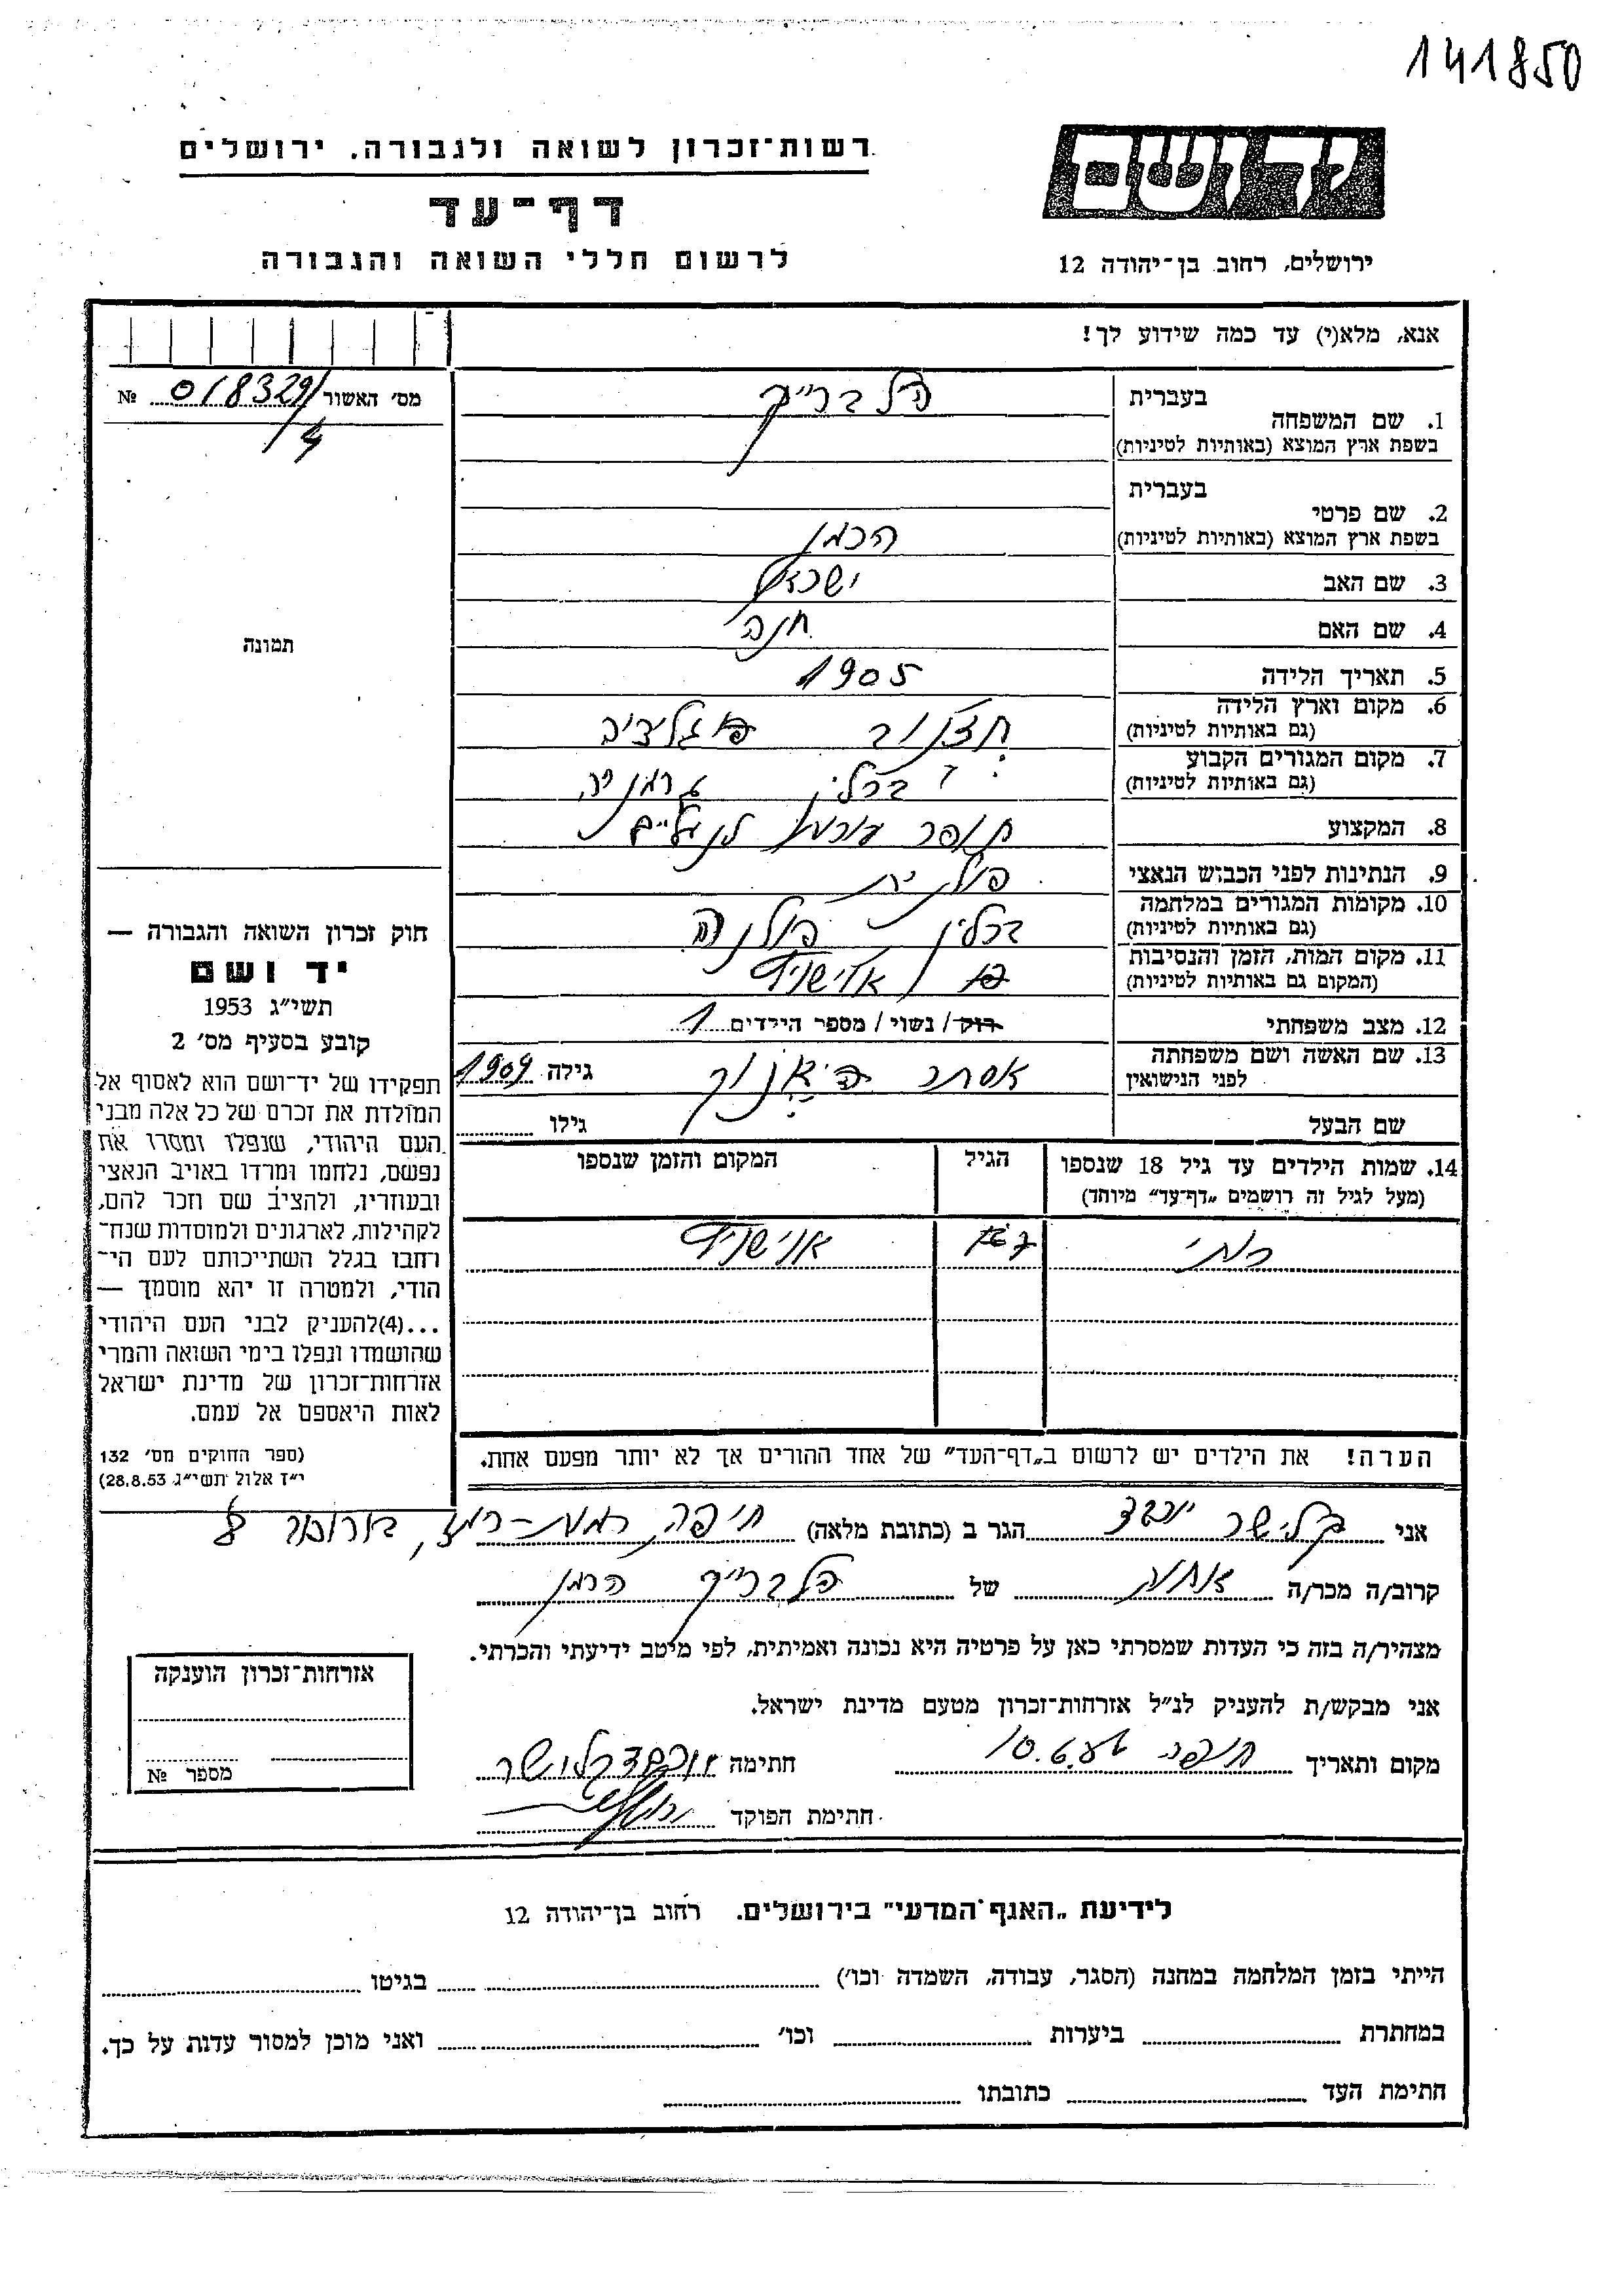 141850
יד ושם
רשות־זכרון לשואה ולגבורה. ירושלים
דף־עד
לרשום חללי השואה והגבורה
ירושלים, רחוב בן־יהודה 12
אנא, מלא(י) עד כמה שידוע לך!
מס' האשור № 018329/4
בעברית
1. שם המשפחה
בשפת ארץ המוצא (באותיות לטיניות)
בעברית
2. שם פרטי
בשפת ארץ המוצא (באותיות לטיניות) הרמן
3. שם האב ישראל
4. שם האם חנה
5. תאריך הלידה 1905
6. מקום וארץ הלידה
(גם באותיות לטיניות)
7. מקום המגורים הקבוע ברלין גרמניה
(גם באותיות לטיניות)
8. המקצוע תופר
9. הנתינות לפני הכבוש הנאצי פולנית
10. מקומות המגורים במלחמה ברלין פולניה
(גם באותיות לטיניות)
11. מקום המות, הזמן והנסיבות אושויץ
(המקום גם באותיות לטיניות)
12. מצב משפחתי רוק / נשוי / מספר הילדים 1
13. שם האשה ושם משפחתה אסתר גילה 1909
לפני הנישואין
שם הבעל גילו
14. שמות הילדים עד גיל 18 שנספו הגיל המקום והזמן שנספו
(מעל לגיל זה רושמים „דף־עד" מיוחד)
רותי 7 אושויץ
הערה! את הילדים יש לרשום ב„דף־העד" של אחד ההורים אך לא יותר מפעם אחת.
תמונה
חוק זכרון השואה והגבורה —
יד ושם
תשי״ג 1953
קובע בסעיף מס' 2
תפקידו של יד־ושם הוא לאסוף אל
המולדת את זכרם של כל אלה מבני
העם היהודי, שנפלו ומסרו את
נפשם, נלחמו ומרדו באויב הנאצי
ובעוזריו, ולהציב שם וזכר להם,
לקהילות, לארגונים ולמוסדות שנח־
רחבו בגלל השתייכותם לעם הי־
הודי, ולמטרה זו יהא מוסמך —
...(4)להעניק לבני העם היהודי
שהושמדו ונפלו בימי השואה והמרי
אזרחות־זכרון של מדינת ישראל
לאות היאספם אל עמם.
(ספר החוקים מס' 132
י״ז אלול תשי״ג 28.8.53)
אני הגר ב (כתובת מלאה) חיפה, רמת-רמז,
קרוב/ה מכר/ה של הרמן
מצהיר/ה בזה כי העדות שמסרתי כאן על פרטיה היא נכונה ואמיתית, לפי מיטב ידיעתי והכרתי.
אני מבקש/ת להעניק לנ״ל אזרחות־זכרון מטעם מדינת ישראל.
מקום ותאריך חיפה חתימה
חתימת הפוקד
אזרחות־זכרון הוענקה
מספר №
לידיעת „האגף המדעי" בירושלים. רחוב בן־יהודה 12
הייתי בזמן המלחמה במחנה (הסגר, עבודה, השמדה וכו') בגיטו
במחתרת ביערות וכו' ואני מוכן למסור עדות על כך.
חתימת העד כתובתו